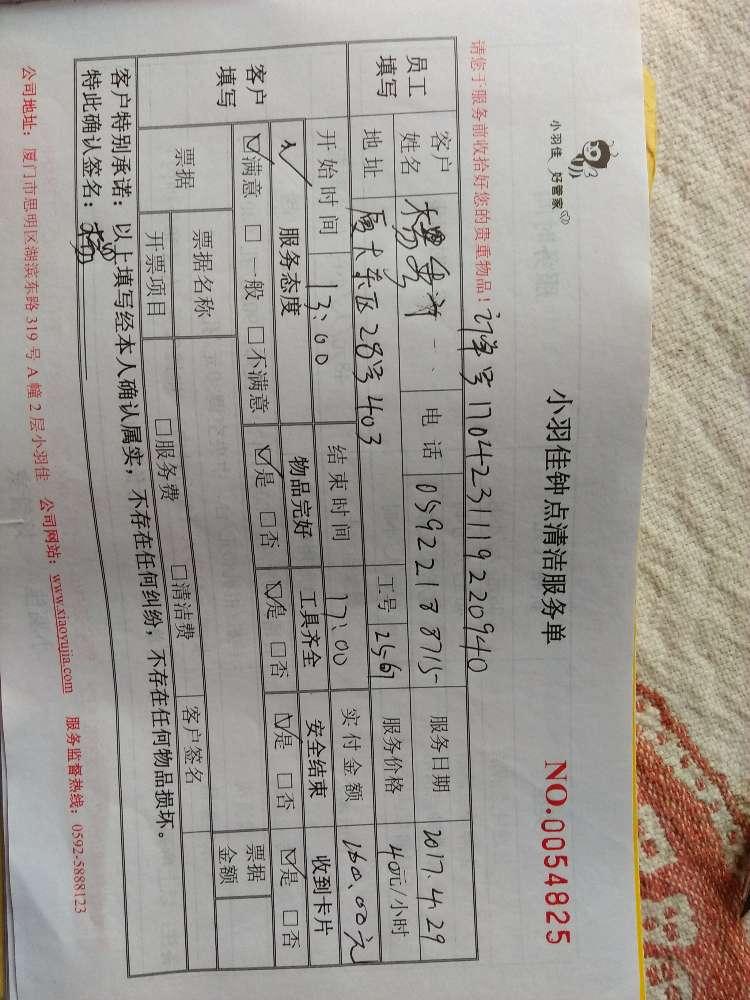 小羽佳 好管家
小羽佳钟点清洁服务单
NO.0054825
请您于服务前收拾好您的贵重物品！ 订单号1704231119220940
员工填写 客户姓名 杨 电话 05922188715 服务日期 2017.4.29
地址 厦大东区28号403 工号 2567 服务价格 40元/小时
客户填写 开始时间 13:00 结束时间 17:00 实付金额 160.00元
服务态度 物品完好 工具齐全 安全结束 收到卡片
☑满意 □一般 □不满意 ☑是 □否 ☑是 □否 ☑是 □否 ☑是 □否
票据 票据名称 □服务费 □清洁费 票据金额
开票项目 客户签名
客户特别承诺：以上填写经本人确认属实，不存在任何纠纷，不存在任何物品损坏。
特此确认签名：杨
公司地址：厦门市思明区湖滨东路319号A幢2层小羽佳 公司网站：www.xiaoyujia.com 服务监督热线：0592-5888123